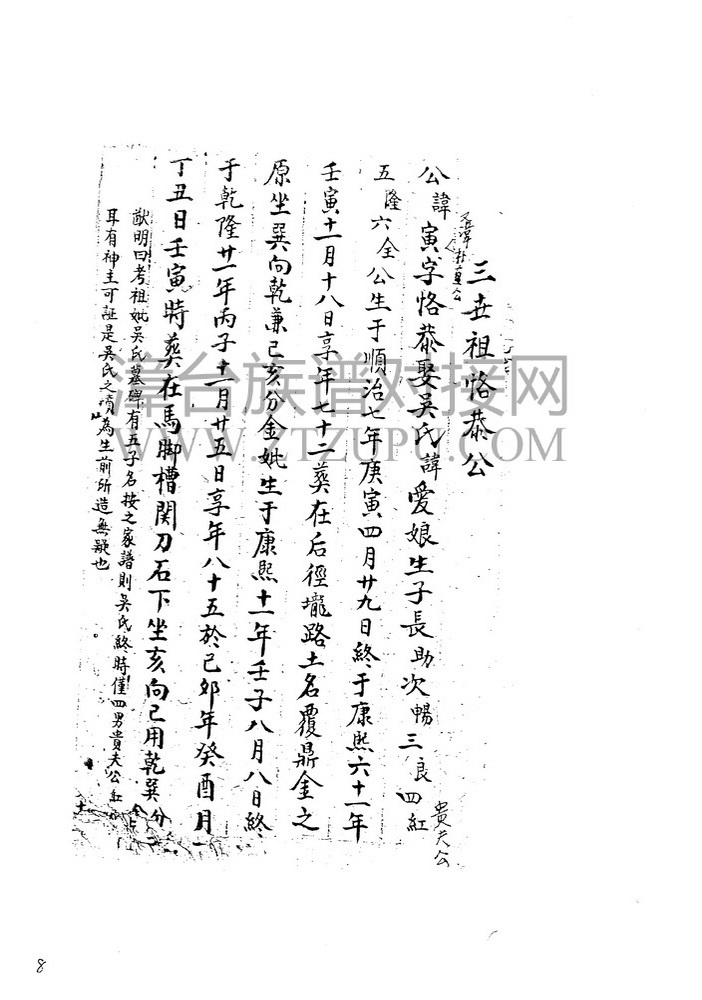 三世祖恪恭公
公諱寅字恪恭娶吳氏諱愛娘生子長助次暢三良四紅
貴夫公
五隆六全公生于順治七年庚寅四月廿九日終于康熙六十一年
壬寅十一月十八日享年七十二葬在后徑壠路土名覆鼎金之
原坐巽向乾兼己亥分金妣生于康熙十一年壬子八月八日終
于乾隆廿一年丙子十一月廿五日享年八十五於己卯年癸酉月
丁丑日壬寅時葬在馬脚槽関刀石下坐亥向己用乾巽分
猷明曰考祖妣吳氏墓碑有五子名按之家譜則吳氏終時僅四男貴夫公紅
耳有神主可証是吳氏之墳為生前所造無疑也
漳台族谱对接网
WWW.ZTZUPU.COM
8